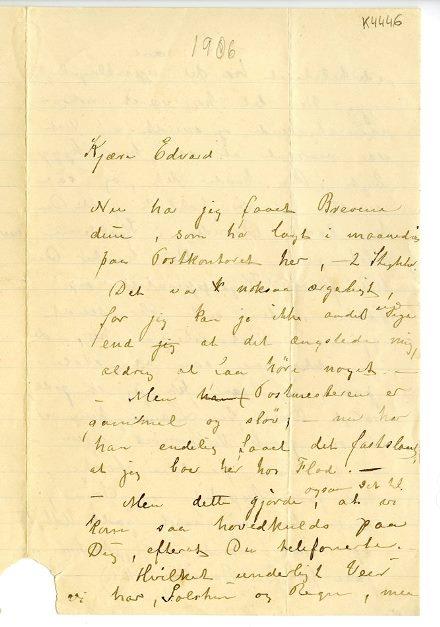 K4446
1906
Kjære Edvard
Nu har jeg faaet Brevene
dine, som har lagt i maanedsvis
paa Postkontoret her, – 2 Stykker
Det var noksaa ærgeligt,
for jeg kan jo ikke andet sige
end jeg at det ængstede mig,
aldrig at faa höre noget. –
– Men Postmesteren er
gammel og slöv; – nu har
han endelig faaet det fastslaaet,
at jeg bor her hos Flod. –
– Men dette gjorde, at vi
kom saa hovedkulds paa
Dig, efterat Du telefonerte. –
Hvilket underligt Veir
vi har, Solskin og Regn, men